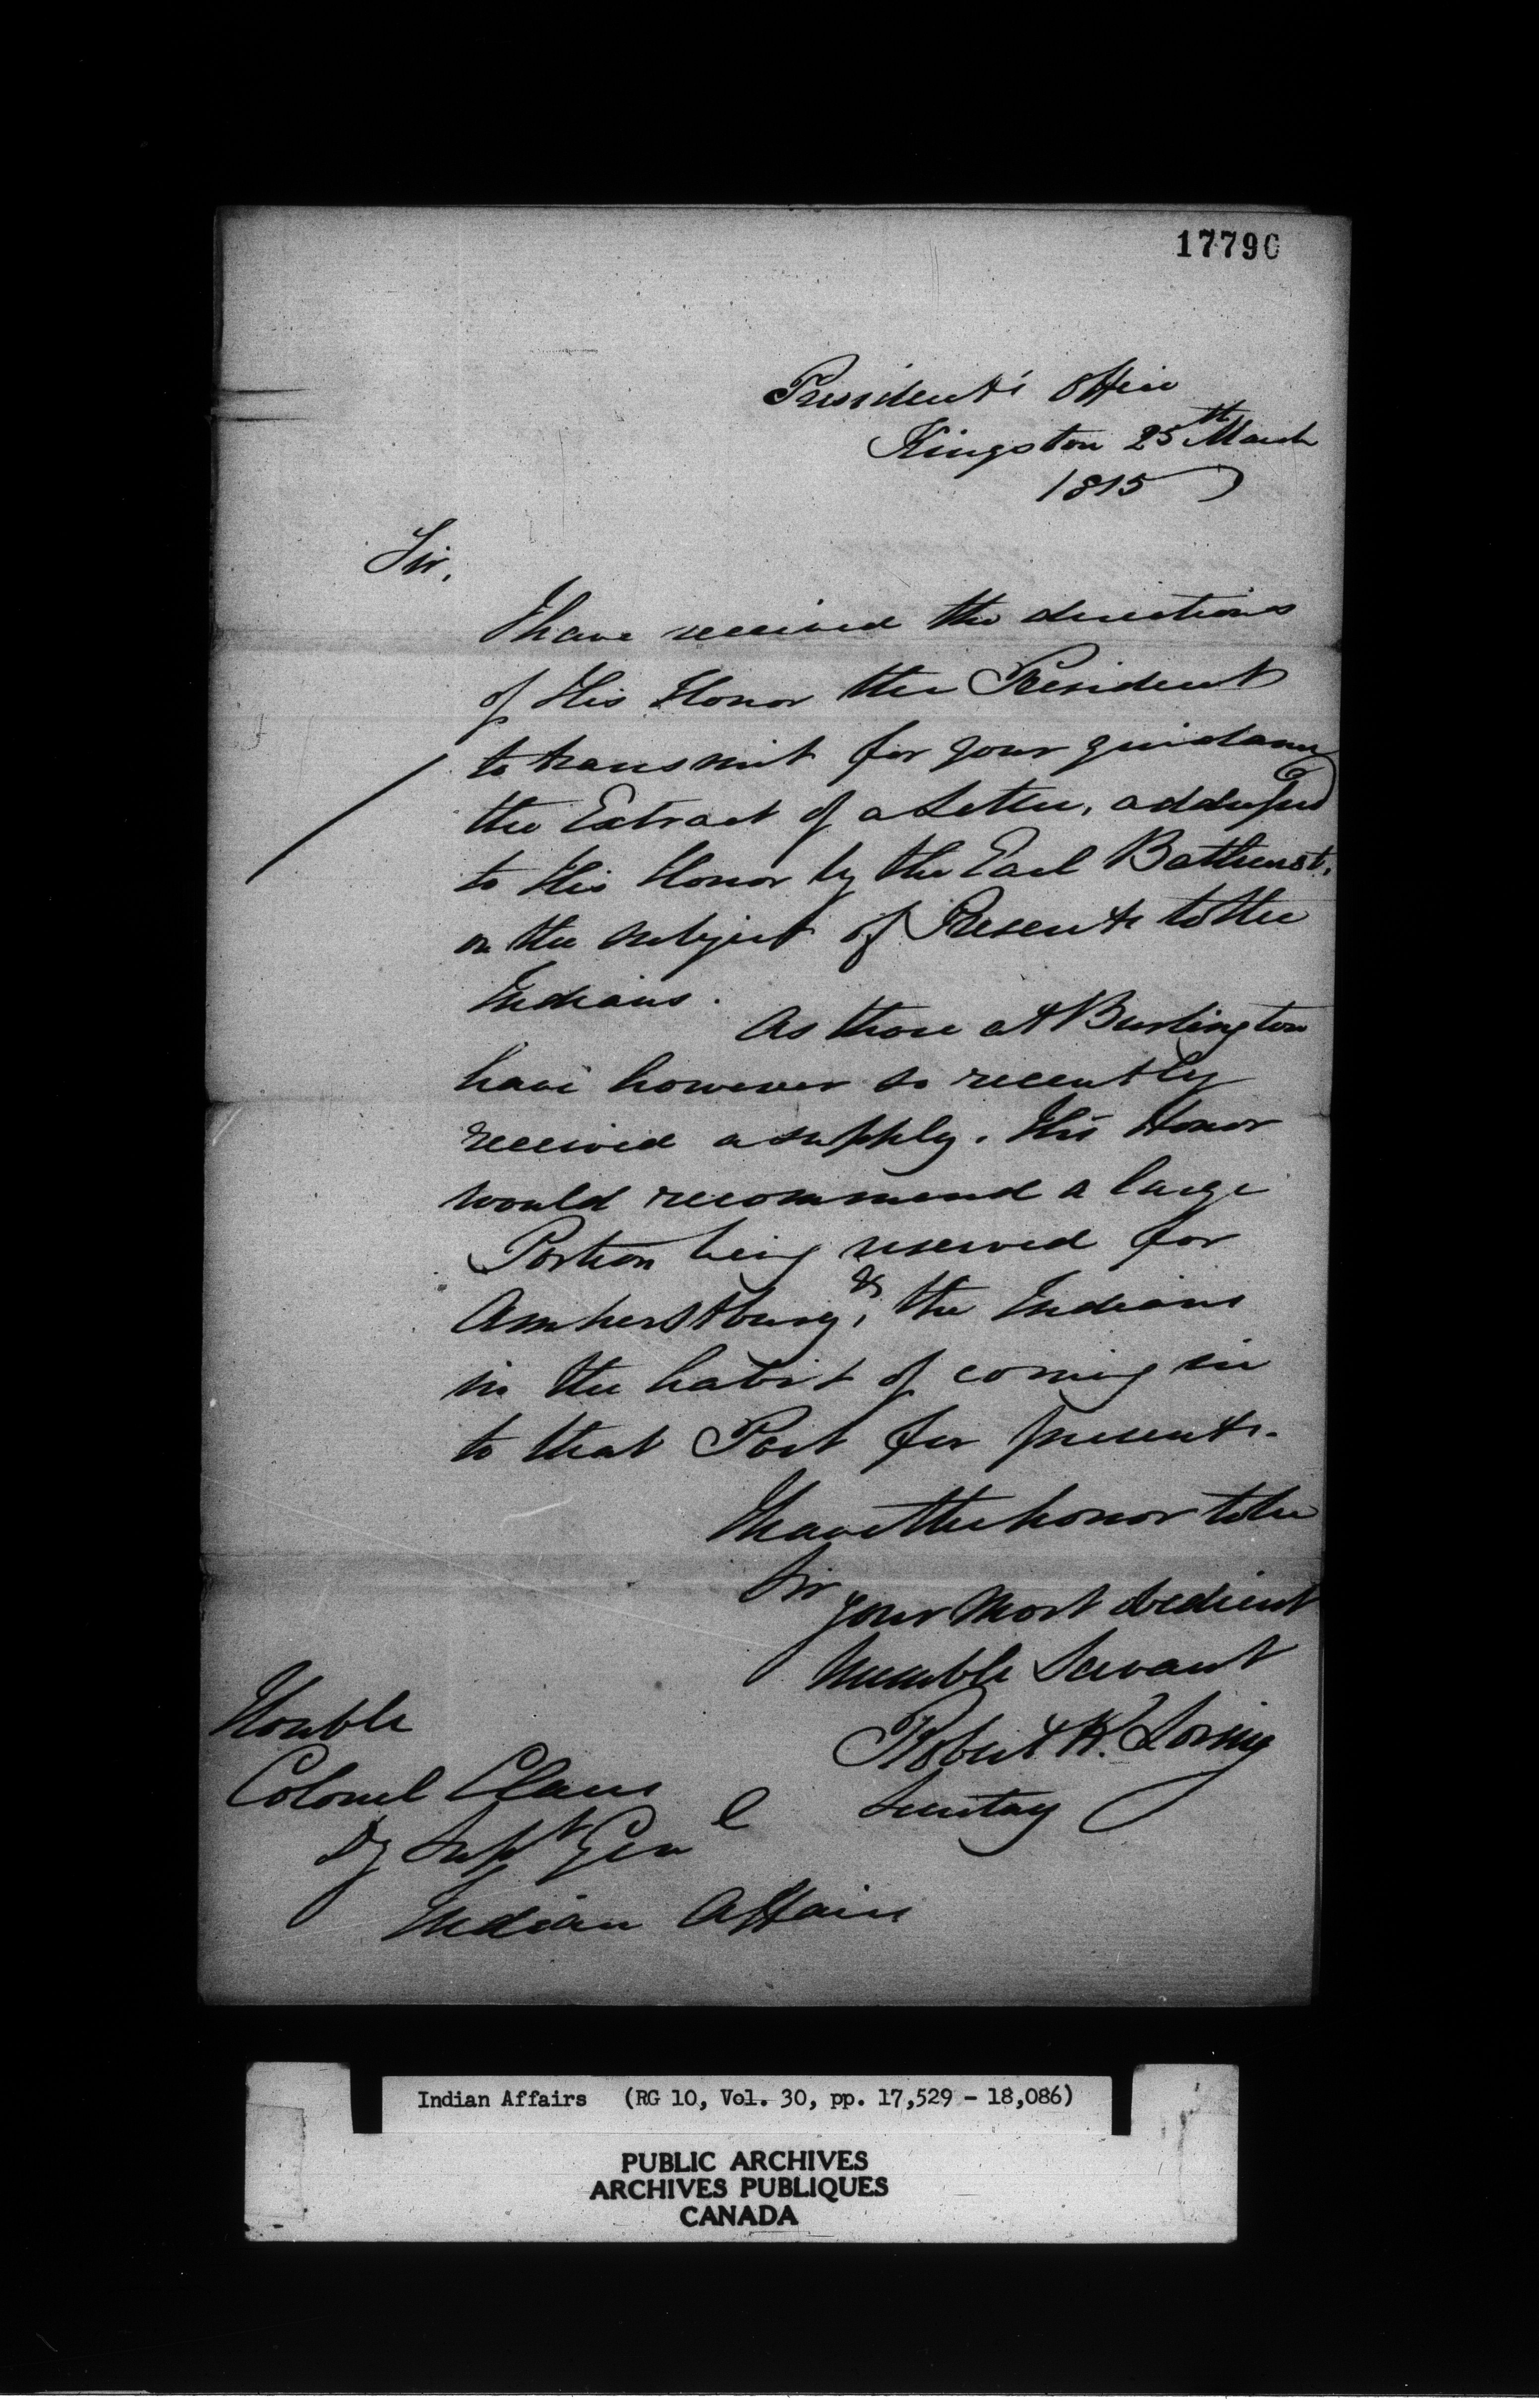 17790
President's Office
Kingston 25th March
1815
Sir,
I have received the directions
of His Honor the President
to transmit for your guidance
the Extract of a Letter, addressed
to His Honor by the Earl Bathurst,
on the subject of Presents to the
Indians.
As those at Burlington
have however so recently
received a supply. His Honor
would recommend a large
Portion being reserved for
Amherstburg, & the Indians
in the habit of coming in
to that Post for presents.
I have the honor to be
Sir
Your most obedient
humble Servant
Robert R. Loring
Secretary
Honble
Colonel Claus
Dy Supt Genl
Indian Affairs
Indian Affairs (RG 10, Vol. 30, pp. 17,529 - 18,086)
PUBLIC ARCHIVES
ARCHIVES PUBLIQUES
CANADA